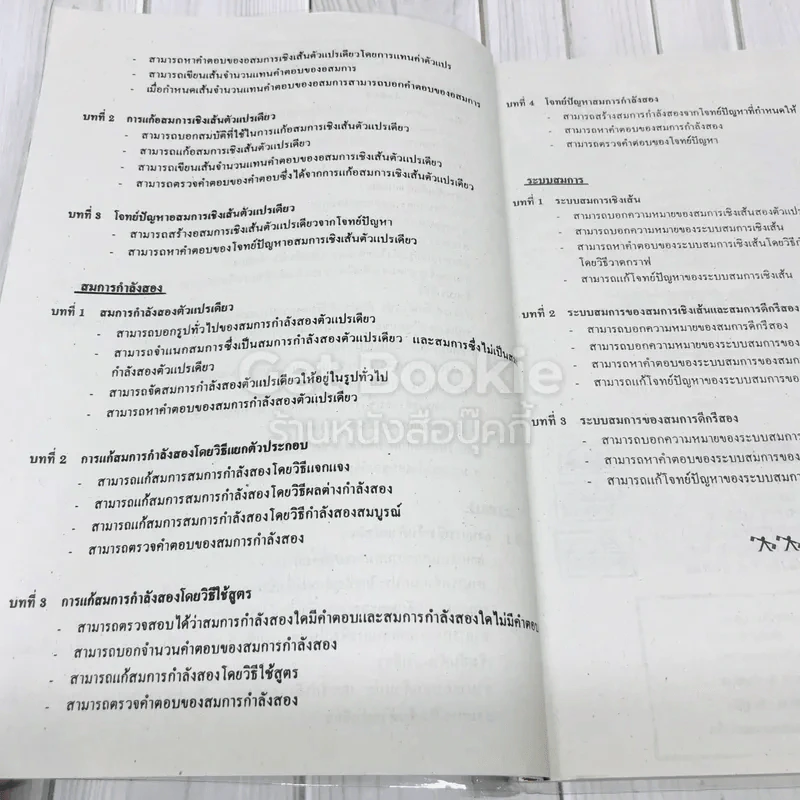 - สามารถหาคำตอบของอสมการเชิงเส้นตัวแปรเดียวโดยการแทนค่าตัวแปร
- สามารถเขียนเส้นจำนวนแทนคำตอบของอสมการ
- เมื่อกำหนดเส้นจำนวนแทนคำตอบของอสมการสามารถบอกคำตอบของอสมการ
บทที่ 2 การแก้อสมการเชิงเส้นตัวแปรเดียว
- สามารถบอกสมบัติที่ใช้ในการแก้อสมการเชิงเส้นตัวแปรเดียว
- สามารถแก้อสมการเชิงเส้นตัวแปรเดียว
- สามารถเขียนเส้นจำนวนแทนคำตอบของอสมการเชิงเส้นตัวแปรเดียว
- สามารถตรวจคำตอบของคำตอบซึ่งได้จากการแก้อสมการเชิงเส้นตัวแปรเดียว
บทที่ 3 โจทย์ปัญหาอสมการเชิงเส้นตัวแปรเดียว
- สามารถสร้างอสมการเชิงเส้นตัวแปรเดียวจากโจทย์ปัญหา
- สามารถหาคำตอบของโจทย์ปัญหาอสมการเชิงเส้นตัวแปรเดียว
สมการกำลังสอง
บทที่ 1 สมการกำลังสองตัวแปรเดียว
- สามารถบอกรูปทั่วไปของสมการกำลังสองตัวแปรเดียว
- สามารถจำแนกสมการซึ่งเป็นสมการกำลังสองตัวแปรเดียว และสมการซึ่งไม่เป็นสม
กำลังสองตัวแปรเดียว
- สามารถจัดสมการกำลังสองตัวแปรเดียวให้อยู่ในรูปทั่วไป
- สามารถหาคำตอบของสมการกำลังสองตัวแปรเดียว
บทที่ 2 การแก้สมการกำลังสองโดยวิธีแยกตัวประกอบ
- สามารถแก้สมการสมการกำลังสองโดยวิธีแจกแจง
- สามารถแก้สมการสมการกำลังสองโดยวิธีผลต่างกำลังสอง
- สามารถแก้สมการสมการกำลังสองโดยวิธีกำลังสองสมบูรณ์
- สามารถตรวจคำตอบของสมการกำลังสอง
บทที่ 3 การแก้สมการกำลังสองโดยวิธีใช้สูตร
- สามารถตรวจสอบได้ว่าสมการกำลังสองใดมีคำตอบและสมการกำลังสองใดไม่มีคำตอบ
- สามารถบอกจำนวนคำตอบของสมการกำลังสอง
- สามารถแก้สมการกำลังสองโดยวิธีใช้สูตร
- สามารถตรวจคำตอบของสมการกำลังสอง
บทที่ 4 โจทย์ปัญหาสมการกำลังสอง
- สามารถสร้างสมการกำลังสองจากโจทย์ปัญหาที่กำหนดให้
- สามารถหาคำตอบของสมการกำลังสอง
- สามารถตรวจคำตอบของโจทย์ปัญหา
ระบบสมการ
บทที่ 1 ระบบสมการเชิงเส้น
- สามารถบอกความหมายของสมการเชิงเส้นสองตัวแปร
- สามารถบอกความหมายของระบบสมการเชิงเส้น
- สามารถหาคำตอบของระบบสมการเชิงเส้นโดยวิธี
โดยวิธีวาดกราฟ
- สามารถแก้โจทย์ปัญหาของระบบสมการเชิงเส้น
บทที่ 2 ระบบสมการของสมการเชิงเส้นและสมการดีกรีสอง
- สามารถบอกความหมายของสมการดีกรีสอง
- สามารถบอกความหมายของระบบสมการของสม
- สามารถหาคำตอบของระบบสมการของสมก
- สามารถแก้โจทย์ปัญหาของระบบสมการของ
บทที่ 3 ระบบสมการของสมการดีกรีสอง
- สามารถบอกความหมายของระบบสมการ
- สามารถหาคำตอบของระบบสมการของ
- สามารถแก้โจทย์ปัญหาของระบบสมก
Get Bookie
ร้านหนังสือบุ๊คกี้